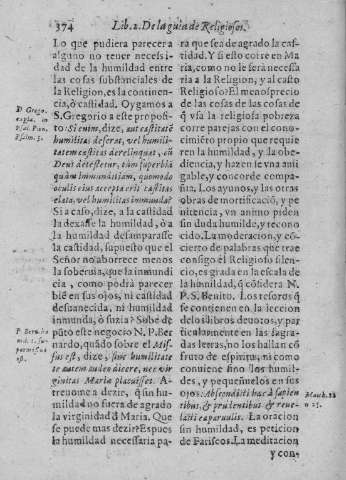 374 Lib. 2. De la guia de Religiosos.
Lo que pudiera parecer a
alguno no tener necesi-
dad de la humildad entre
las cosas substanciales de
la Religion, es la continen-
cia, ò castidad. Oygamos a
S. Gregorio a este proposi-
to: Si enim, dize, aut castitatē
humilitas deserat, vel humili-
tatem castitas derelinquat, cū
Deus detestetur, eàm superbiā
quàm immunditiam, quomodo
oculis eius accepta erit castitas
elata, vel humilitas inmunda?
Si a caso, dize, a la castidad
la dexasse la humildad, ò a
la humildad desamparasse
la castidad, supuesto que el
Señor no aborrece menos
la soberuia, que la inmundi
cia, como podrà parecer
biē en sus ojos, ni castidad
desuanecida, ni humildad
inmunda, ò suzia? Sobe de
pūto este negocio N. P. Ber
nardo, quādo sobre el Mis-
sus est, dize, sine humilitate
te autem audeo dicere, nec vir
ginitas Mariæ placuisset. A-
treuome a dezir, q̄ sin hu-
mildad no fuera de agrado
la virginidad d̄ Maria. Que
se puede mas dezir? Espues
la humildad necessaria pa-
D. Grego.
Psalm. 3.
P. Bern. ho
est.
ra que sea de agrado la casti-
dad. Y si esto corre en Ma
ria, como no le serà necessa
ria a la Religion, y al casto
Religioso? El menosprecio
de las cosas de las cosas de
q̄ vsa la religiosa pobreza
corre parejas con el cono-
cimiēto proprio que requie
ren la humildad, y la obe-
diencia, y hazen le vna ami
gable, y concorde compa-
ñia. Los ayunos, y las otras
obras de mortificaciō, y pe
nitencia, vn animo piden
sin duda humilde, y recono
cido. La moderacion, y cō-
cierto de palabras que trae
consigo el Religioso silen-
cio, es grada en la escala de
la humildad, q̄ cōsidera N.
P. S. Benito. Los resoros q̄
se contienen en la leccion
de los libros deuotos, y par
ticularmente en las sagra-
das letras, no los hallan cō
fruto de espiritu, ni como
conuiene sino los humil-
des, y pequeñuelos en sus
ojos: Abscondisti hæc à sapien
tibus, & prudentibus & reue-
lasti ea paruulis. La oracion
sin humildad, es peticion
de Fariseos. La meditacion
y con-
Matth. 11
n 25.